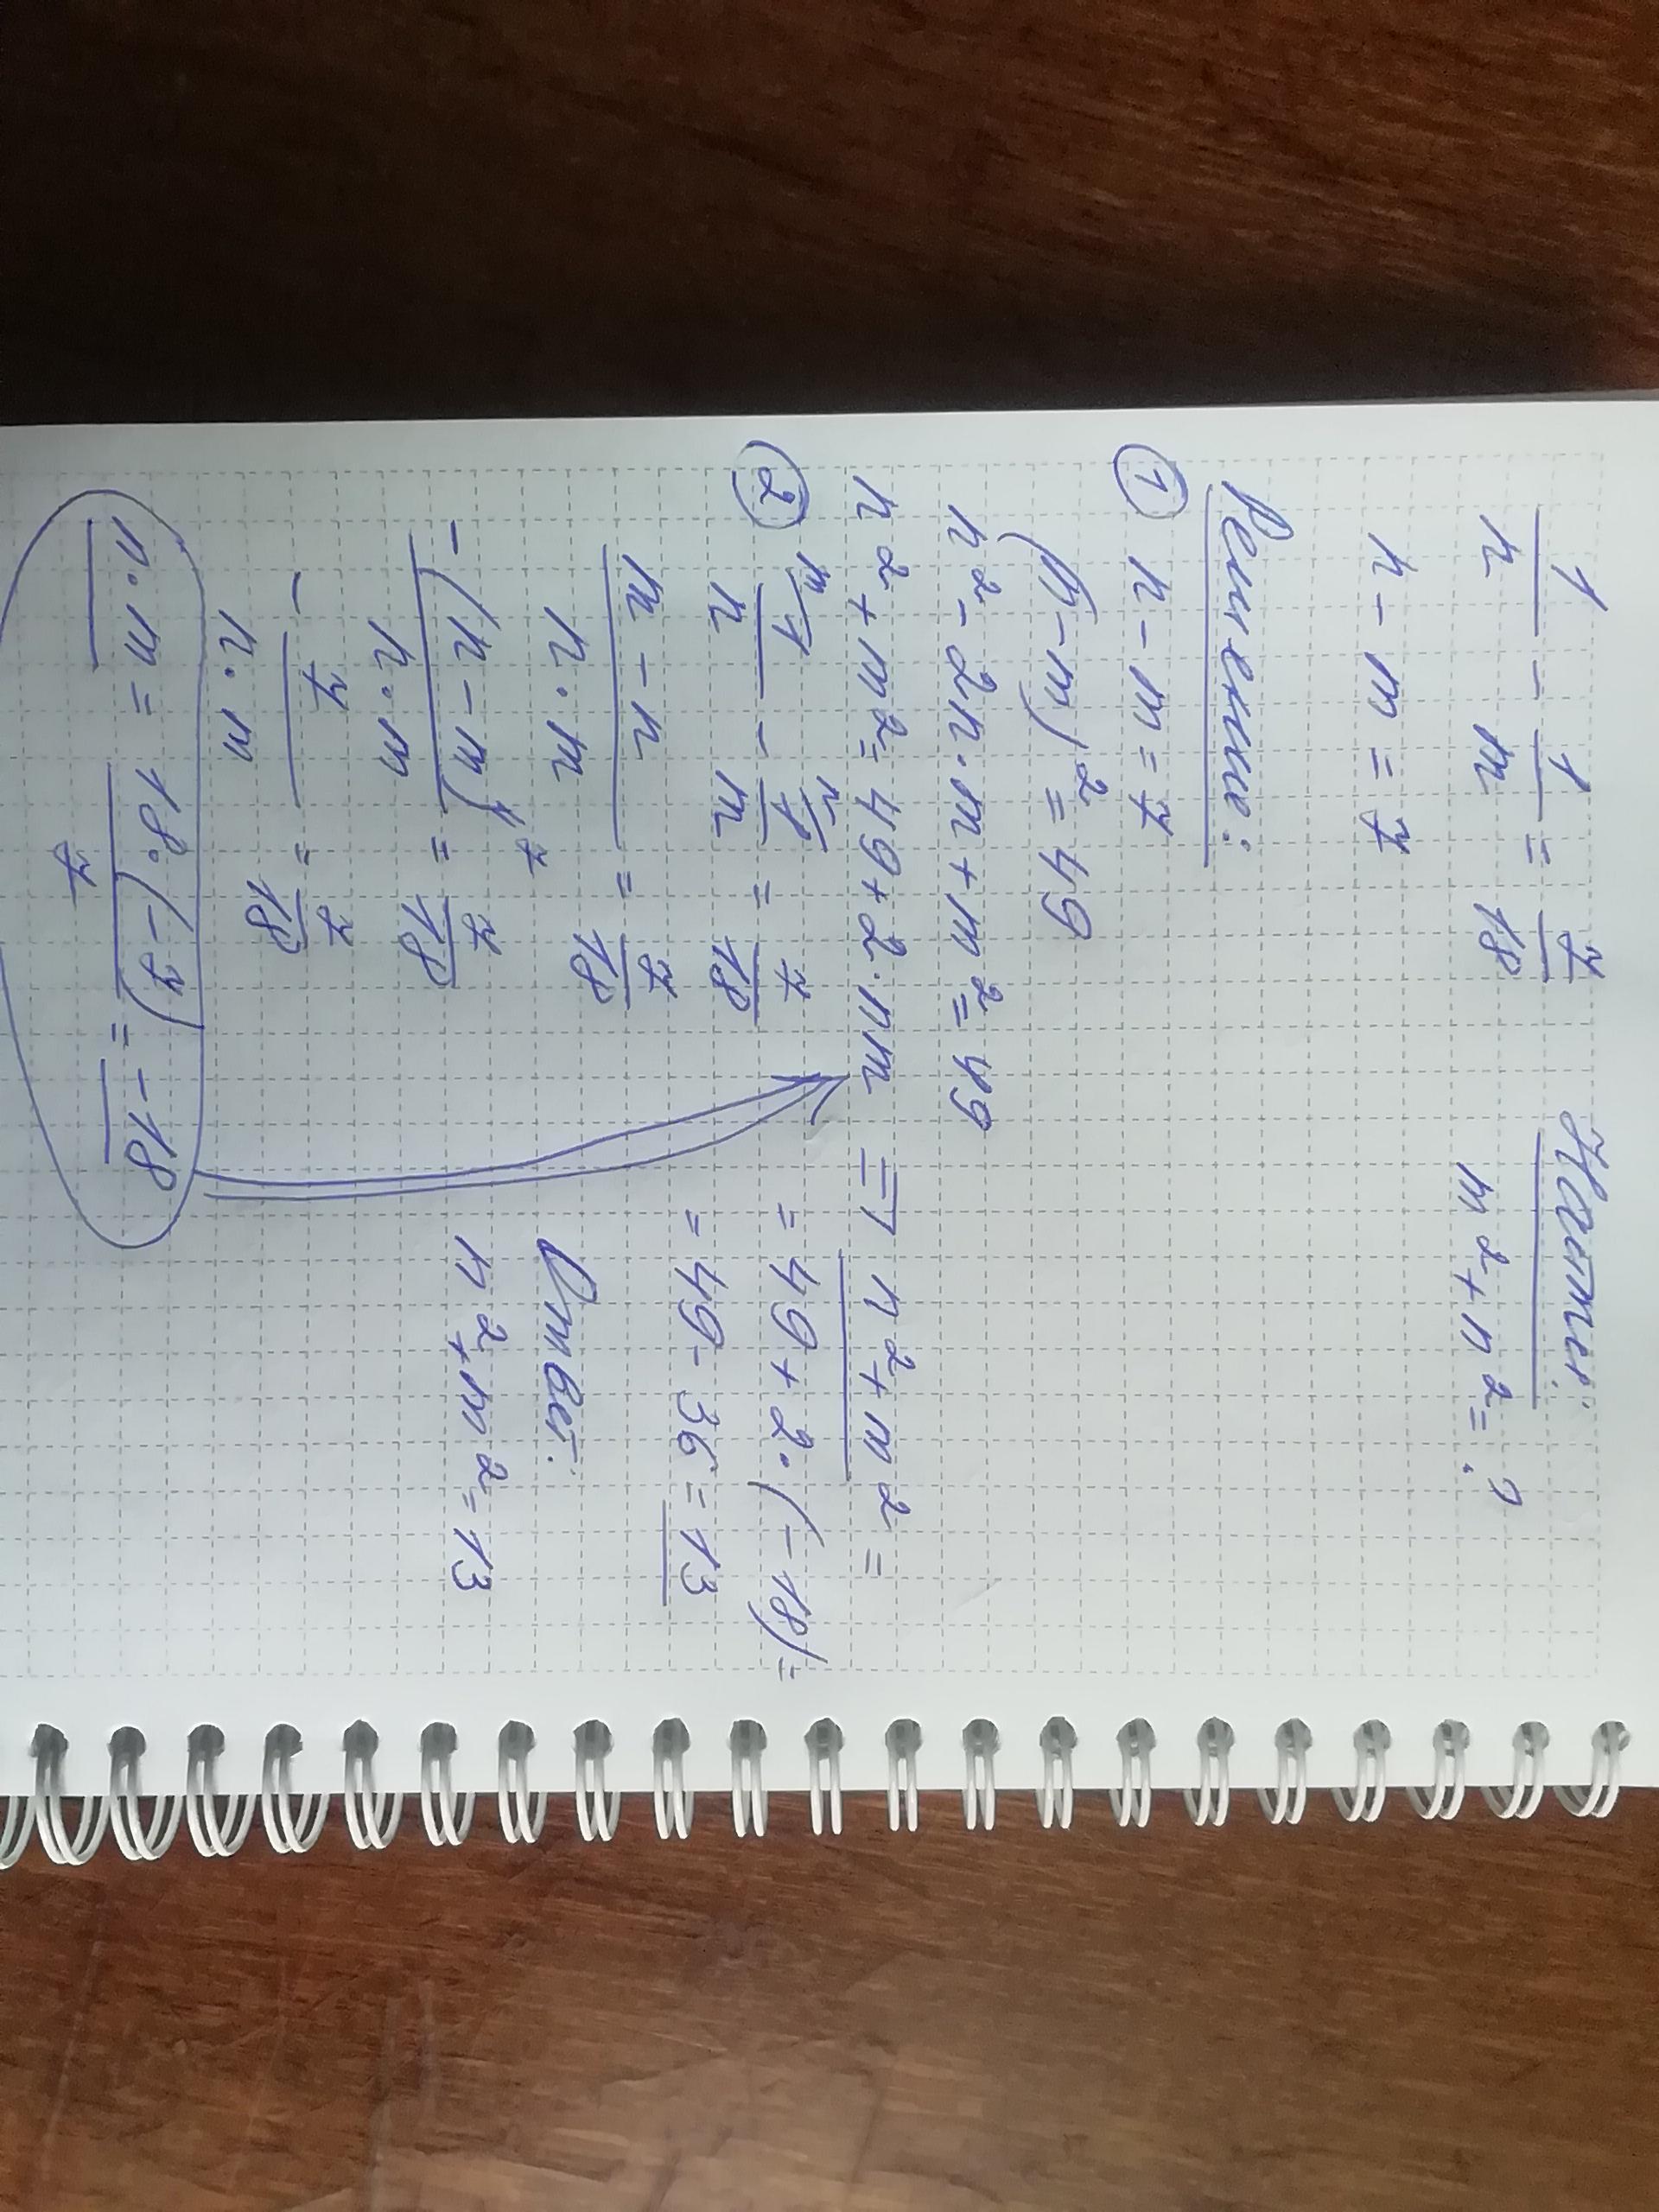 1/n - 1/m = 7/18
Найти:
n - m = 7
m² + n² = ?
Решение:
① n - m = 7
(n - m)² = 49
n² - 2n·m + m² = 49
n² + m² = 49 + 2·nm => n² + m² =
= 49 + 2·(-18) =
= 49 - 36 = 13
② m\1/n - n\1/m = 7/18
(m - n)/(n·m) = 7/18
-(n - m)⁷/(n·m) = 7/18
- 7/(n·m) = 7/18
n·m = 18·(-7)/7 = -18
Ответ:
n² + m² = 13